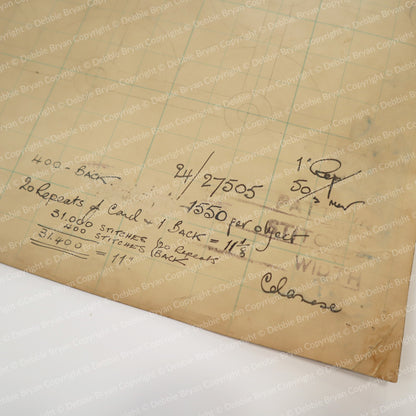 400 - BACK.
24/27505
1" Rep
50/s mer
20 Repeats of Card & 1 BACK = 11 1/8
1550 per object
31.000 STITCHES 20 Repeats
400 STITCHES (BACK
31.400 = 11"
PAT
STITCH
WIDTH
Celanese
Debbie Bryan Copyright © Debbie Bryan Copyright © Debbie Bryan Copyright ©